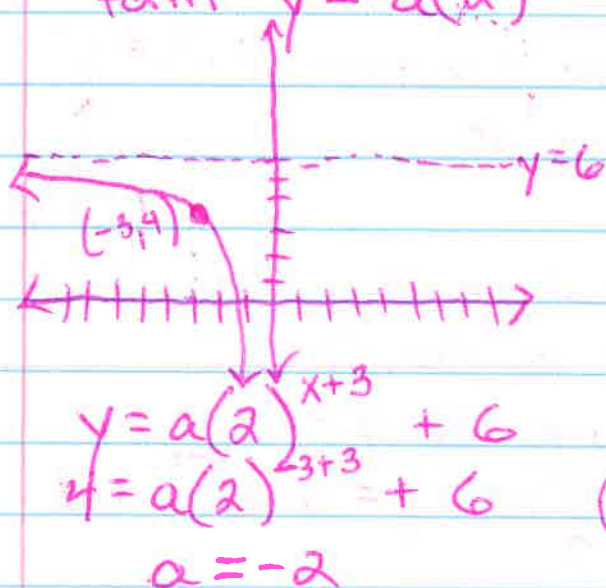 y = a(
y = 6
(-3,4)
y = a(2)^{x+3} + 6
4 = a(2)^{-3+3} + 6
a = -2